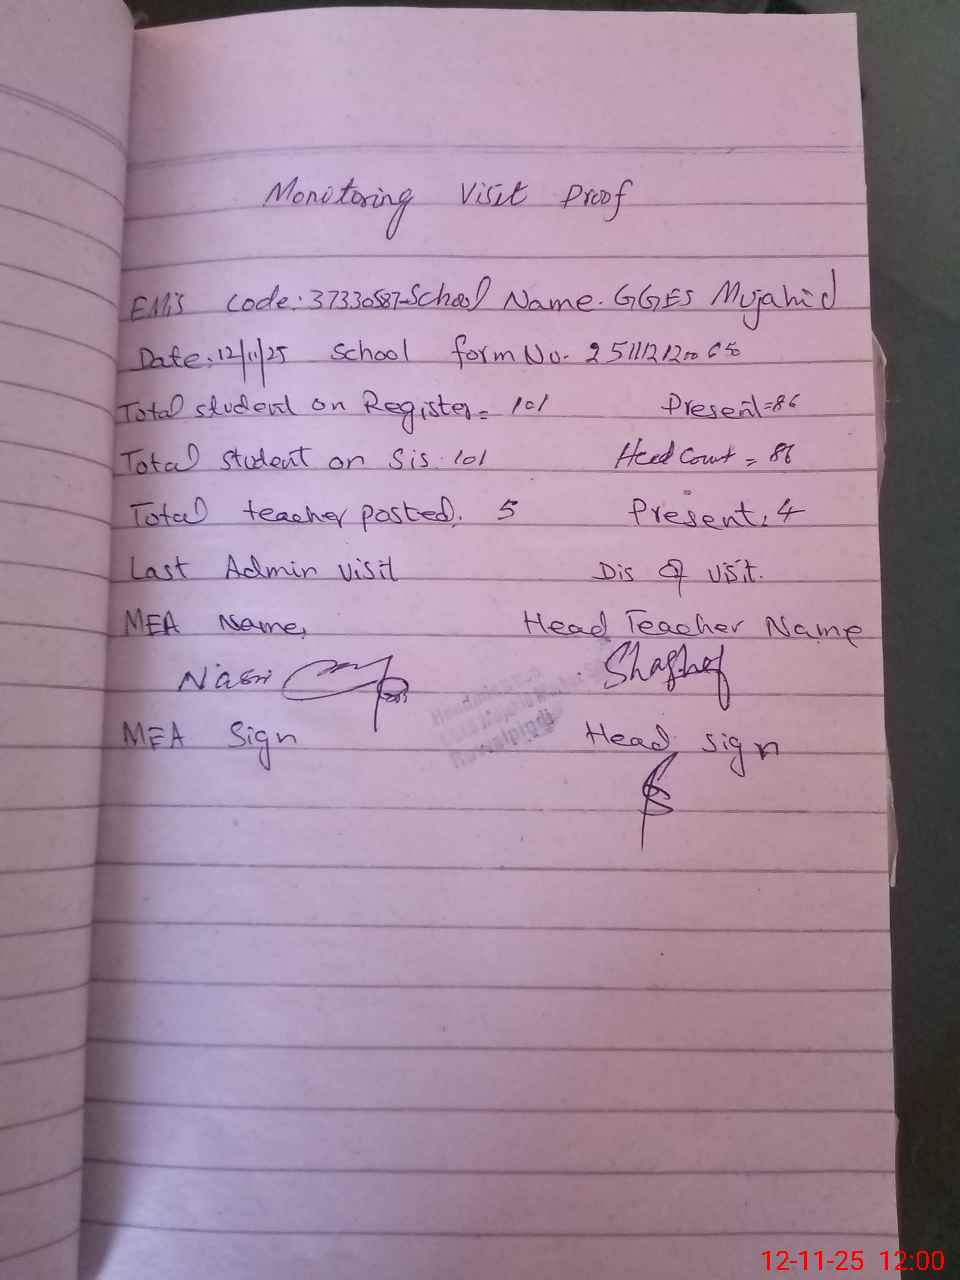 Monitoring Visit Proof
EMIS Code: 37330587-School Name. GGES Mujahid
Date: 12/11/25 School form No. 2511121200650
Total student on Register = 101 Present = 86
Total student on Sis. 101 Head Count = 86
Total teacher posted. 5 Present. 4
Last Admin visit Dis of visit.
MEA Name, Head Teacher Name
MEA Sign Head sign
Rawalpindi
12-11-25 12:00